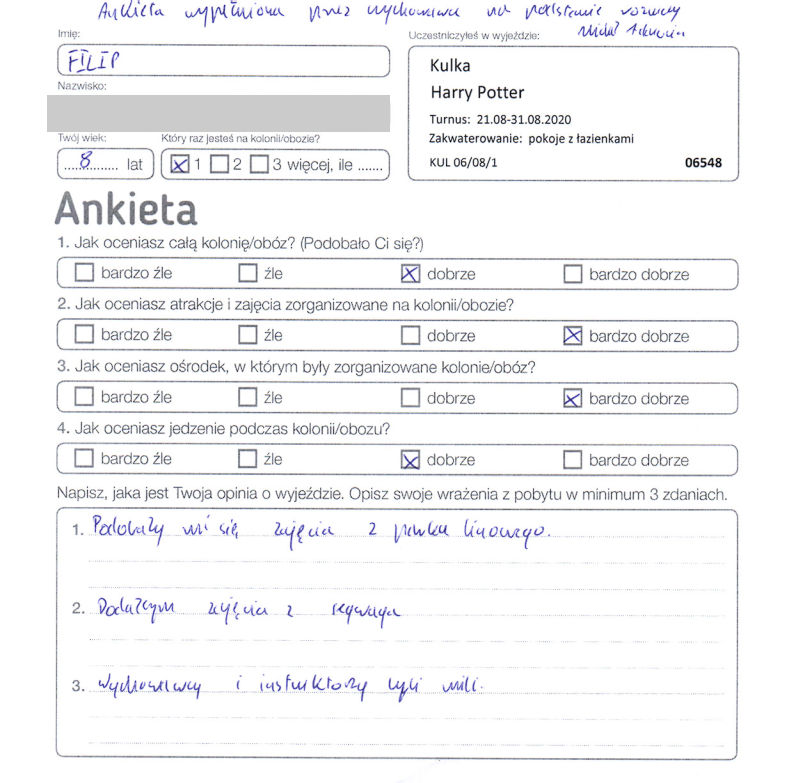 Ankieta wypełniona przez wychowawcę na podstawie rozmowy
Michał
Imię:
FILIP
Nazwisko:
Twój wiek:
8 lat
Który raz jesteś na kolonii/obozie?
1 2 3 więcej, ile .......
Uczestniczyłeś w wyjeździe:
Kulka
Harry Potter
Turnus: 21.08-31.08.2020
Zakwaterowanie: pokoje z łazienkami
KUL 06/08/1 06548
Ankieta
1. Jak oceniasz całą kolonię/obóz? (Podobało Ci się?)
bardzo źle źle dobrze bardzo dobrze
2. Jak oceniasz atrakcje i zajęcia zorganizowane na kolonii/obozie?
bardzo źle źle dobrze bardzo dobrze
3. Jak oceniasz ośrodek, w którym były zorganizowane kolonie/obóz?
bardzo źle źle dobrze bardzo dobrze
4. Jak oceniasz jedzenie podczas kolonii/obozu?
bardzo źle źle dobrze bardzo dobrze
Napisz, jaka jest Twoja opinia o wyjeździe. Opisz swoje wrażenia z pobytu w minimum 3 zdaniach.
1. Podobały mi się zajęcia z parku linowego.
2. Dodałbym zajęcia z segwaya
3. Wychowawcy i instruktorzy byli mili.